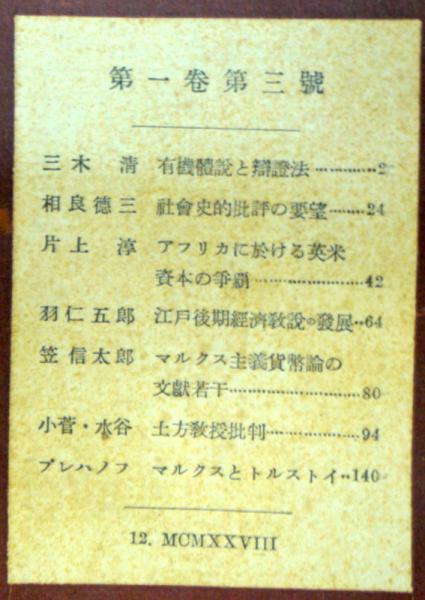 第一卷第三號
三木 淸 有機體說と辯證法…………2
相良德三 社會史的批評の要望……24
片上 淳 アフリカに於ける英米
資本の爭覇…………………42
羽仁五郎 江戶後期經濟敎說の發展‥64
笠信太郎 マルクス主義貨幣論の
文獻若干………………………80
小菅・水谷 土方敎授批判………………94
プレハノフ マルクスとトルストイ‥140
12. MCMXXVIII